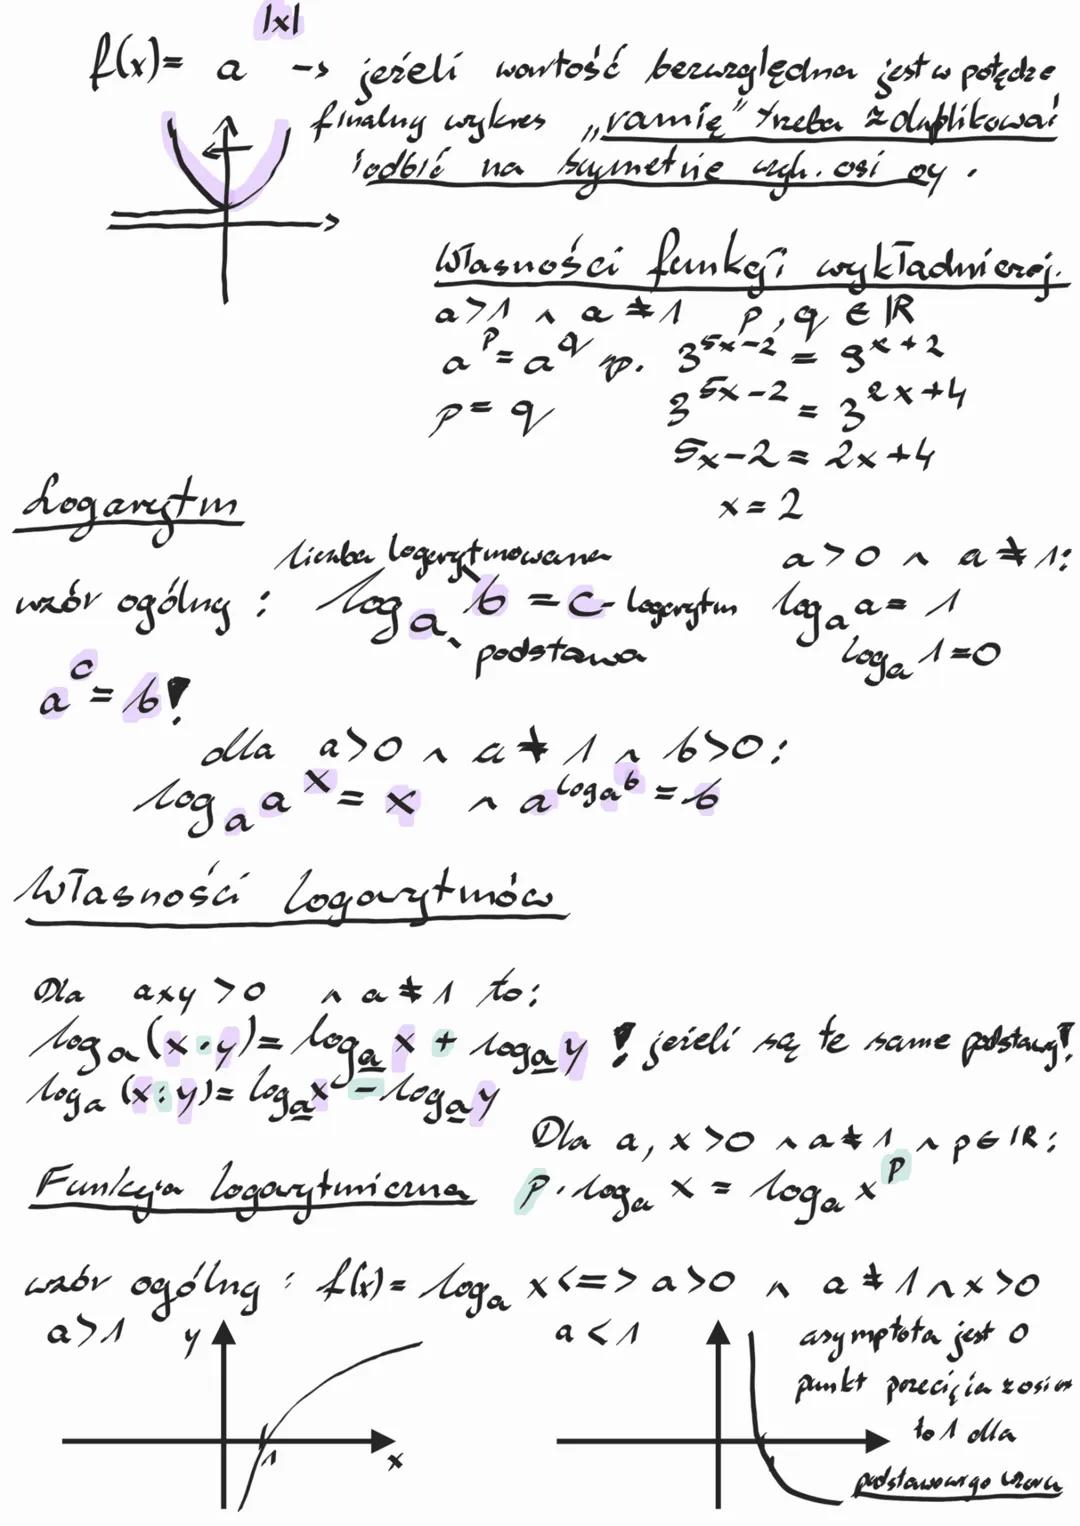 f(x)= a^|x| -> jeżeli wartość bezwzględna jest w potędze
finalny wykres „ramię" trzeba zduplikować
i odbić na symetrie wzgl. osi oy.
Własności funkcji wykładniczej.
a>1 ∧ a≠1 p,q ∈ ℝ
a^p = a^q np. 3^(5x-2) = 9^(x+2)
p=q 3^(5x-2) = 3^(2x+4)
5x-2 = 2x+4
x=2
Logarytm
liczba logarytmowana
a>0 ∧ a≠1:
wzór ogólny: log_a b = c - logarytm log_a a = 1
podstawa log_a 1=0
a^c = b!
dla a>0 ∧ a≠1 ∧ b>0:
log_a a^x = x ∧ a^(log_a b) = b
Własności logarytmów
Dla axy >0 ∧ a≠1 to:
log_a(x·y)= log_a x + log_a y ! jeżeli są te same podstawy!
log_a (x:y)= log_a x - log_a y
Dla a, x>0 ∧ a≠1 ∧ p∈ℝ:
Funkcja logarytmiczna p·log_a x = log_a x^p
wzór ogólny: f(x)= log_a x <=> a>0 ∧ a≠1 ∧ x>0
a>1 y a<1 asymptota jest 0
punkt przecięcia z osią
1 x to 1 dla
podstawowego wzoru